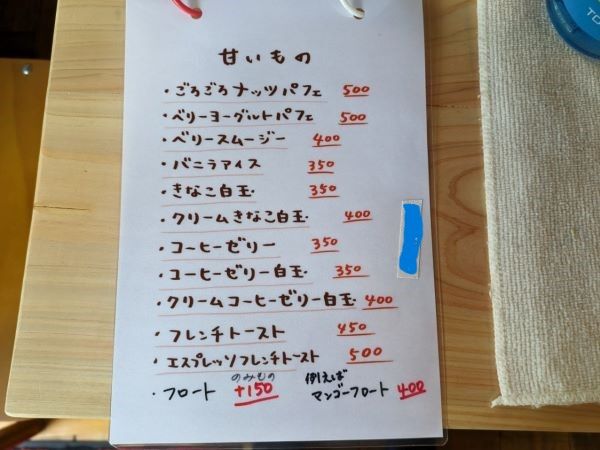 甘いもの
・ごろごろナッツパフェ 500
・ベリーヨーグルトパフェ 500
・ベリースムージー 400
・バニラアイス 350
・きなこ白玉 350
・クリームきなこ白玉 400
・コーヒーゼリー 350
・コーヒーゼリー白玉 350
・クリームコーヒーゼリー白玉 400
・フレンチトースト 450
・エスプレッソフレンチトースト 500
のみもの 例えば
・フロート +150 マンゴーフロート 400